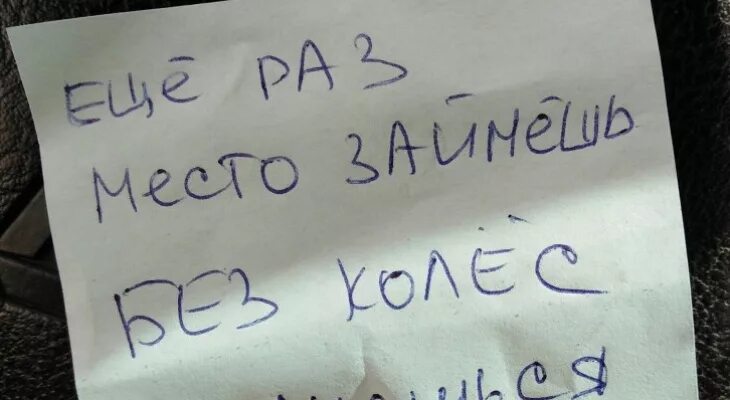 ЕЩЁ РАЗ
МЕСТО ЗАЙМЁШЬ
БЕЗ КОЛЁС